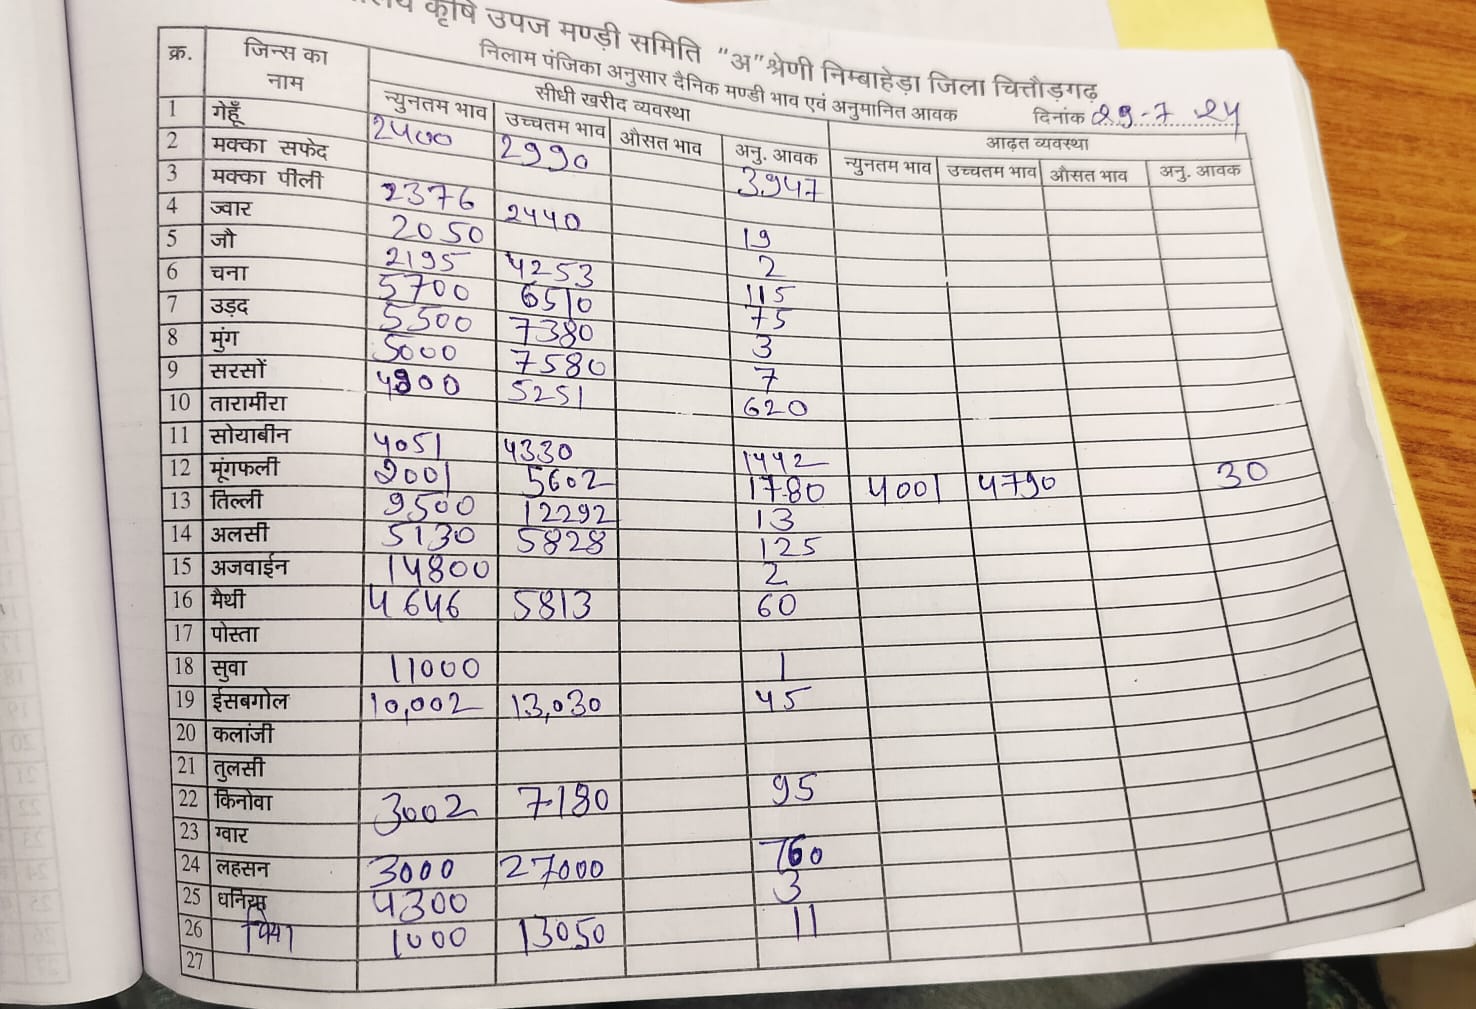 कृषि उपज मण्डी समिति "अ" श्रेणी निम्बाहेड़ा जिला चित्तौड़गढ़
निलाम पंजिका अनुसार दैनिक मण्डी भाव एवं अनुमानित आवक दिनांक 29-7-24
क्र. जिन्स का नाम सीधी खरीद व्यवस्था आढ़त व्यवस्था
न्युनतम भाव उच्चतम भाव औसत भाव अनु. आवक न्युनतम भाव उच्चतम भाव औसत भाव अनु. आवक
1 गेहूँ 2400 2990 3947
2 मक्का सफेद
3 मक्का पीली 2376 2440 19
4 ज्वार 2050 2
5 जौ 2195 4253 115
6 चना 5700 6510 75
7 उड़द 5500 7380 3
8 मुंग 5000 7580 7
9 सरसों 4900 5251 620
10 तारामीरा
11 सोयाबीन 4051 4330 1442
12 मूंगफली 2001 5602 1780 4001 4790 30
13 तिल्ली 9500 12292 13
14 अलसी 5130 5828 125
15 अजवाईन 14800 2
16 मैथी 4646 5813 60
17 पोस्ता
18 सुवा 11000 1
19 ईसबगोल 10,002 13,030 45
20 कलांजी
21 तुलसी
22 किनोवा 3002 7180 95
23 ग्वार
24 लहसन 3000 27000 760
25 धनिया 4300 3
26 1000 13050 11
27